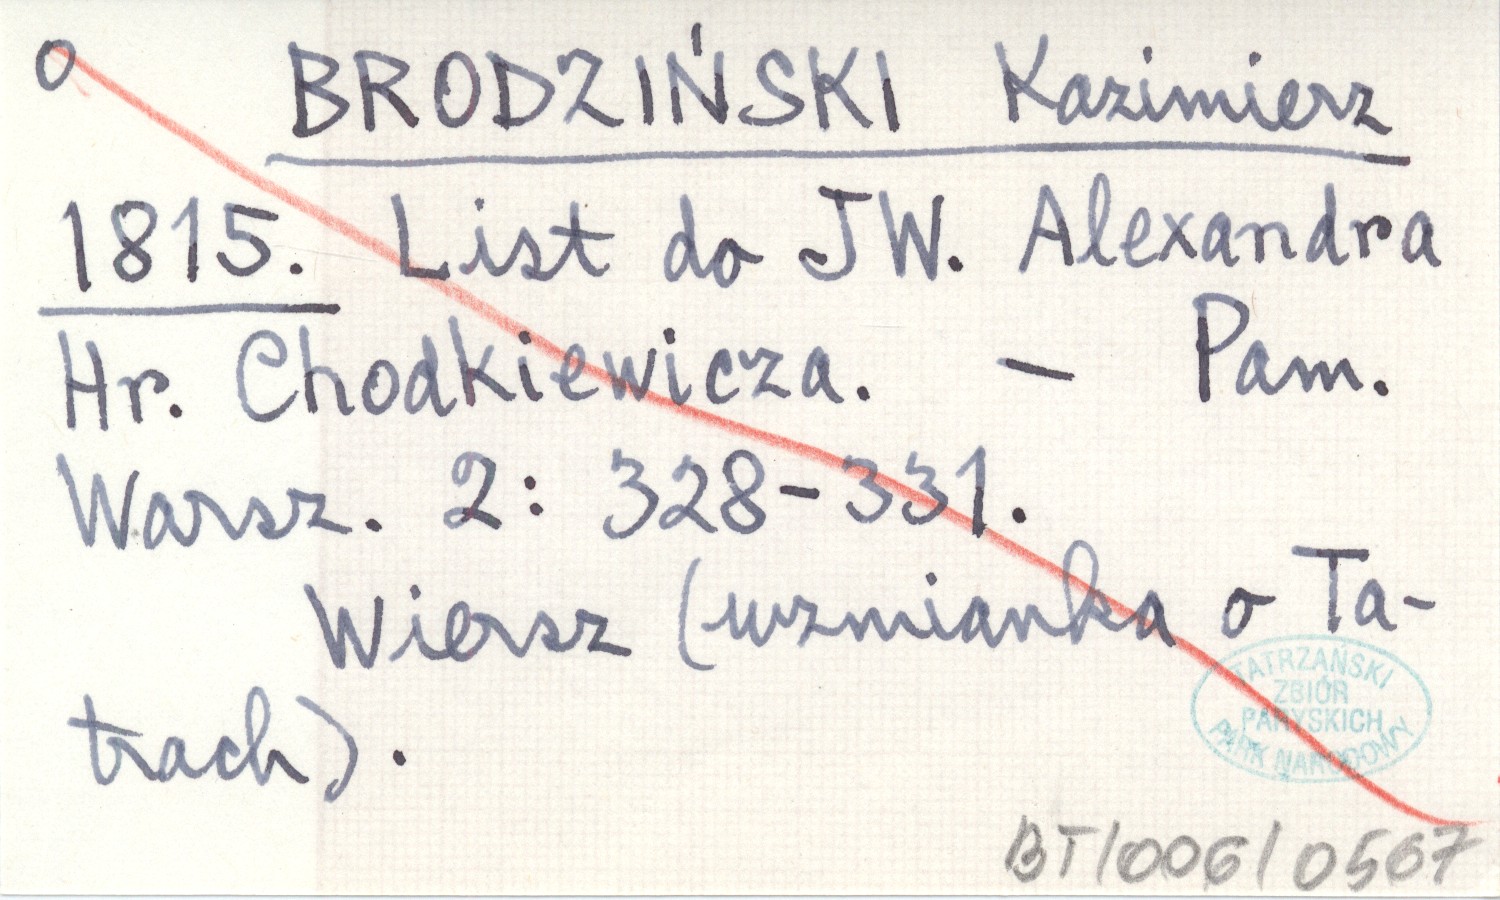 o BRODZIŃSKI Kazimierz
1815. List do JW. Alexandra
Hr. Chodkiewicza. — Pam.
Warsz. 2: 328-331.
Wiersz (wzmianka o Ta-
trach).
TATRZAŃSKI
ZBIÓR
PARYSKICH
PARK NARODOWY
BT/006/0567